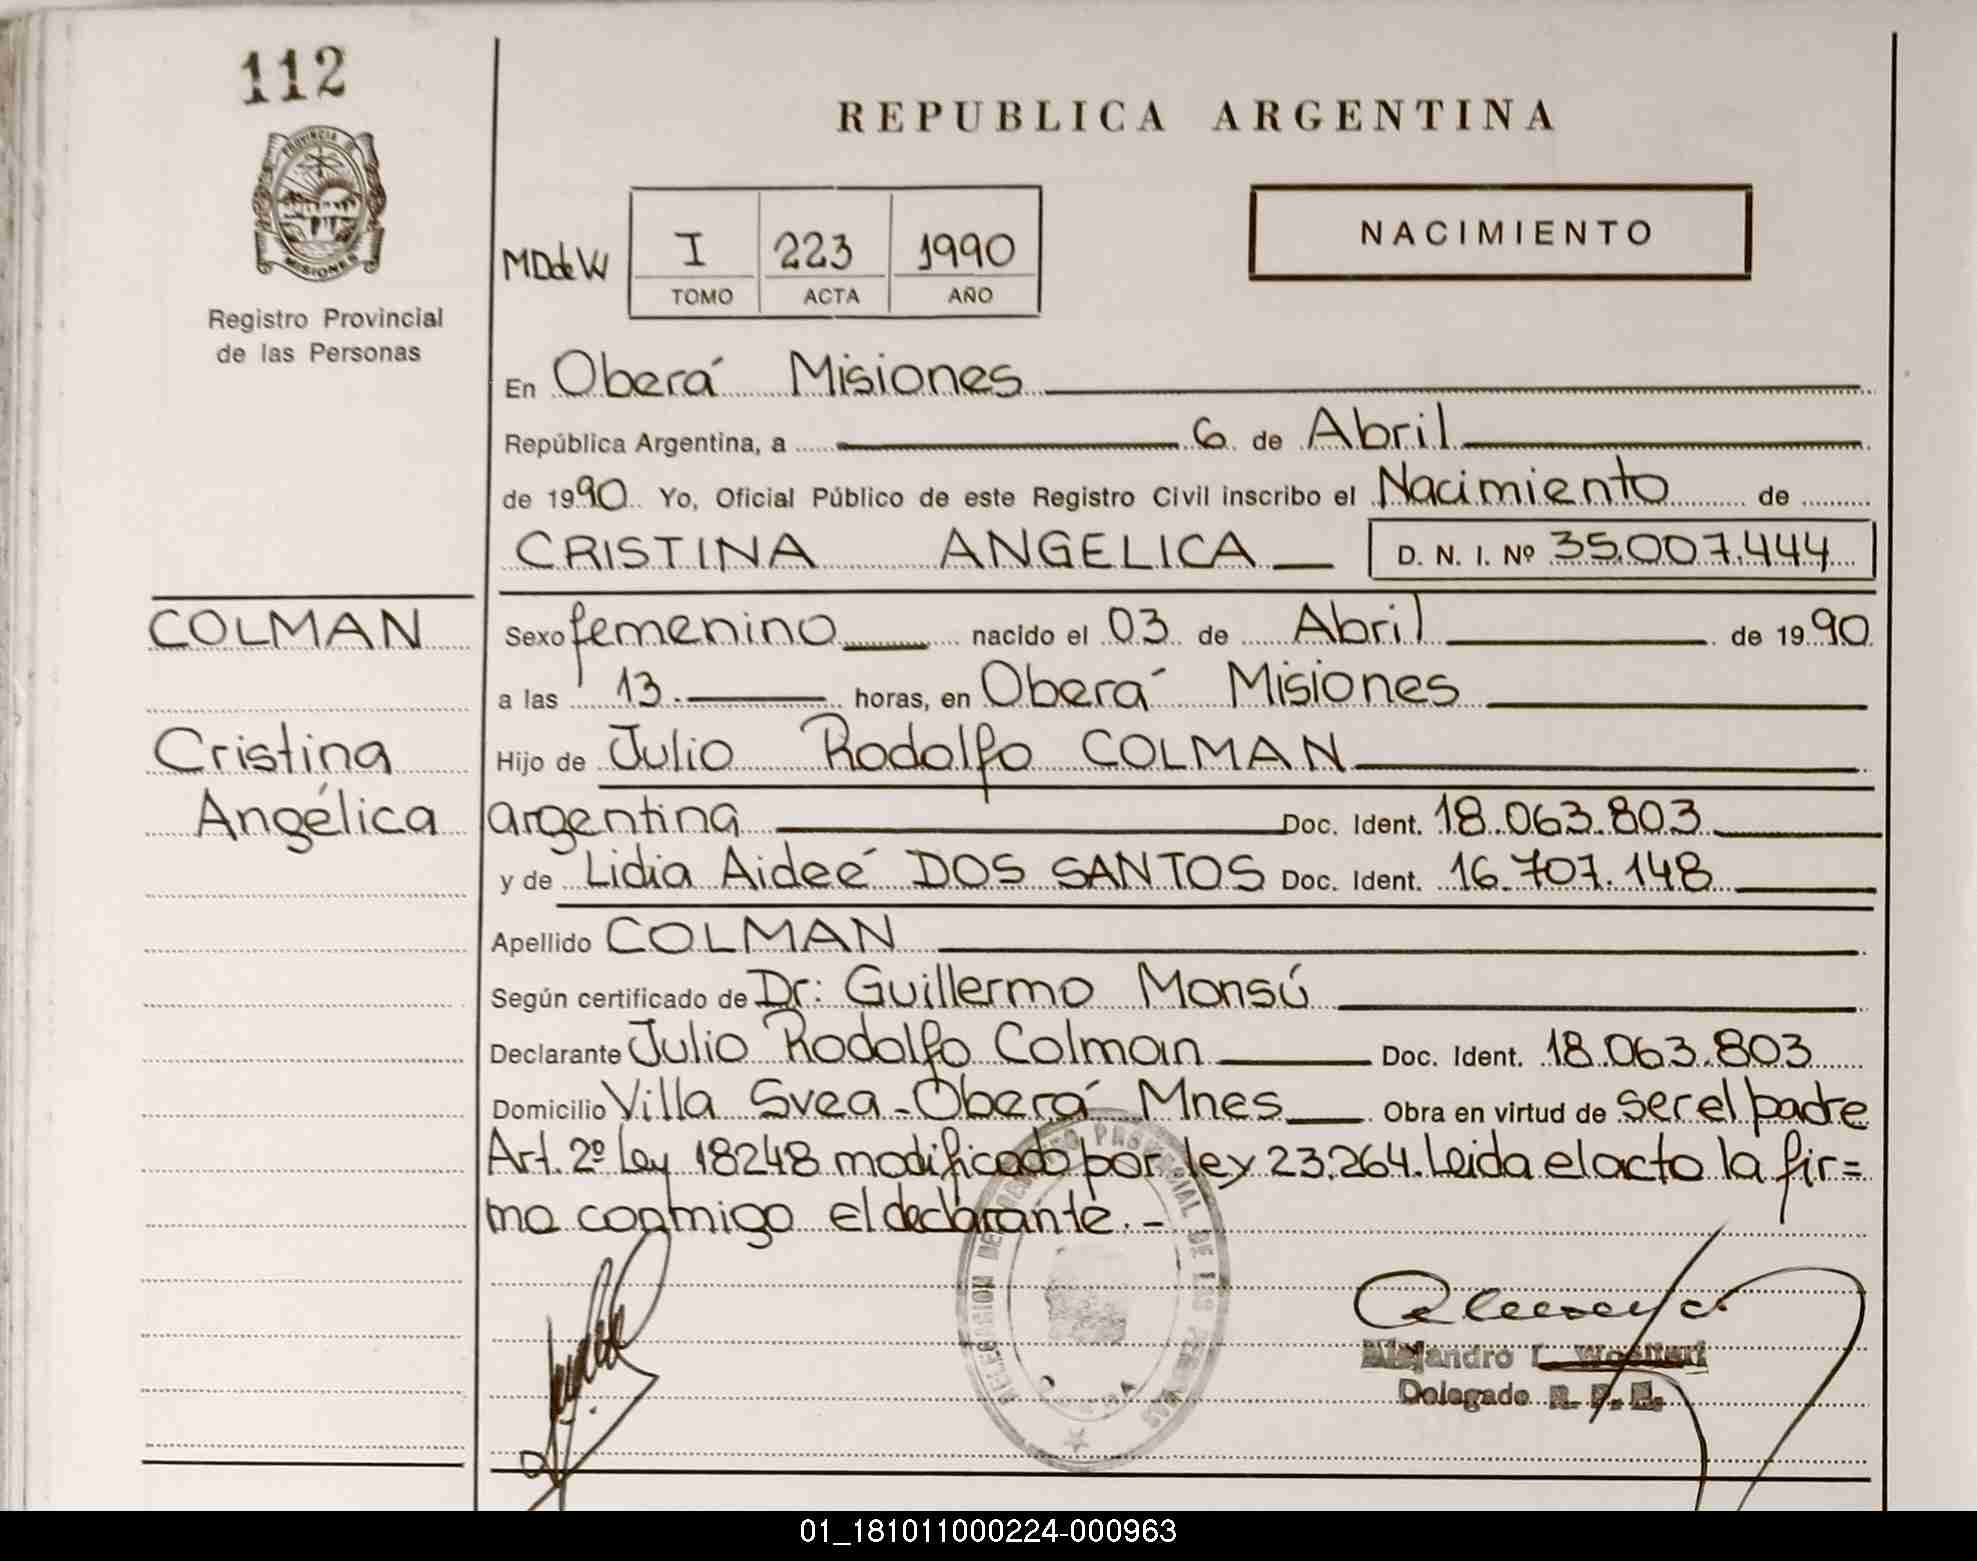 112
PROVINCIA D
MISIONES
Registro Provincial
de las Personas
REPUBLICA ARGENTINA
NACIMIENTO
MDdeW
I 223 1990
TOMO ACTA AÑO
En Oberá Misiones
República Argentina, a 6 de Abril
de 1990 Yo, Oficial Público de este Registro Civil inscribo el Nacimiento de
CRISTINA ANGELICA D. N. I. Nº 35.007.444
COLMAN
Cristina
Angélica
Sexo femenino nacido el 03 de Abril de 1990
a las 13. horas, en Oberá Misiones
Hijo de Julio Rodolfo COLMAN
argentina Doc. Ident. 18.063.803
y de Lidia Aideé DOS SANTOS Doc. Ident. 16.707.148
Apellido COLMAN
Según certificado de Dr: Guillermo Monsú
Declarante Julio Rodolfo Colman Doc. Ident. 18.063.803
Domicilio Villa Svea - Oberá Mnes Obra en virtud de ser el padre
Art. 2º Ley 18248 modificado por ley 23.264. Leida el acto la fir=
ma conmigo el declarante. -
PROVINCIAL DE LAS PERSONAS
Alejandro
Delegado R. P. P.
01_181011000224-000963